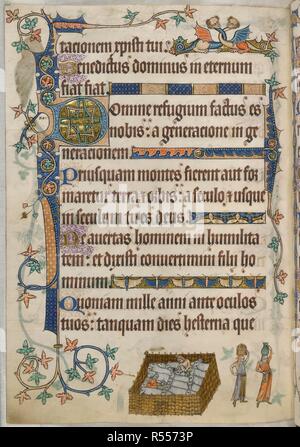 tacionem xpisti tui.
Benedictus dominus in eternum
fiat fiat.
Domine refugium factus es
nobis: a generacione in ge
neracionem
Priusquam montes fierent aut for
maretur terra & orbis: a seculo & usque
in seculum tu es deus.
Ne avertas hominem in humilita
tem: et dixisti convertimini filii ho
minum.
Quoniam mille anni ante oculos
tuos: tanquam dies hesterna que
alamy
Image ID: R5573P
www.alamy.com